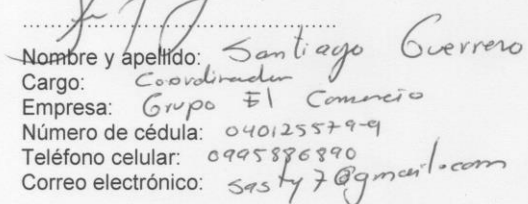 Nombre y apellido: Santiago Guerrero
Cargo: Coordinador
Empresa: Grupo El Comercio
Número de cédula: 040125579-9
Teléfono celular: 0995886890
Correo electrónico: sasty7@gmail.com